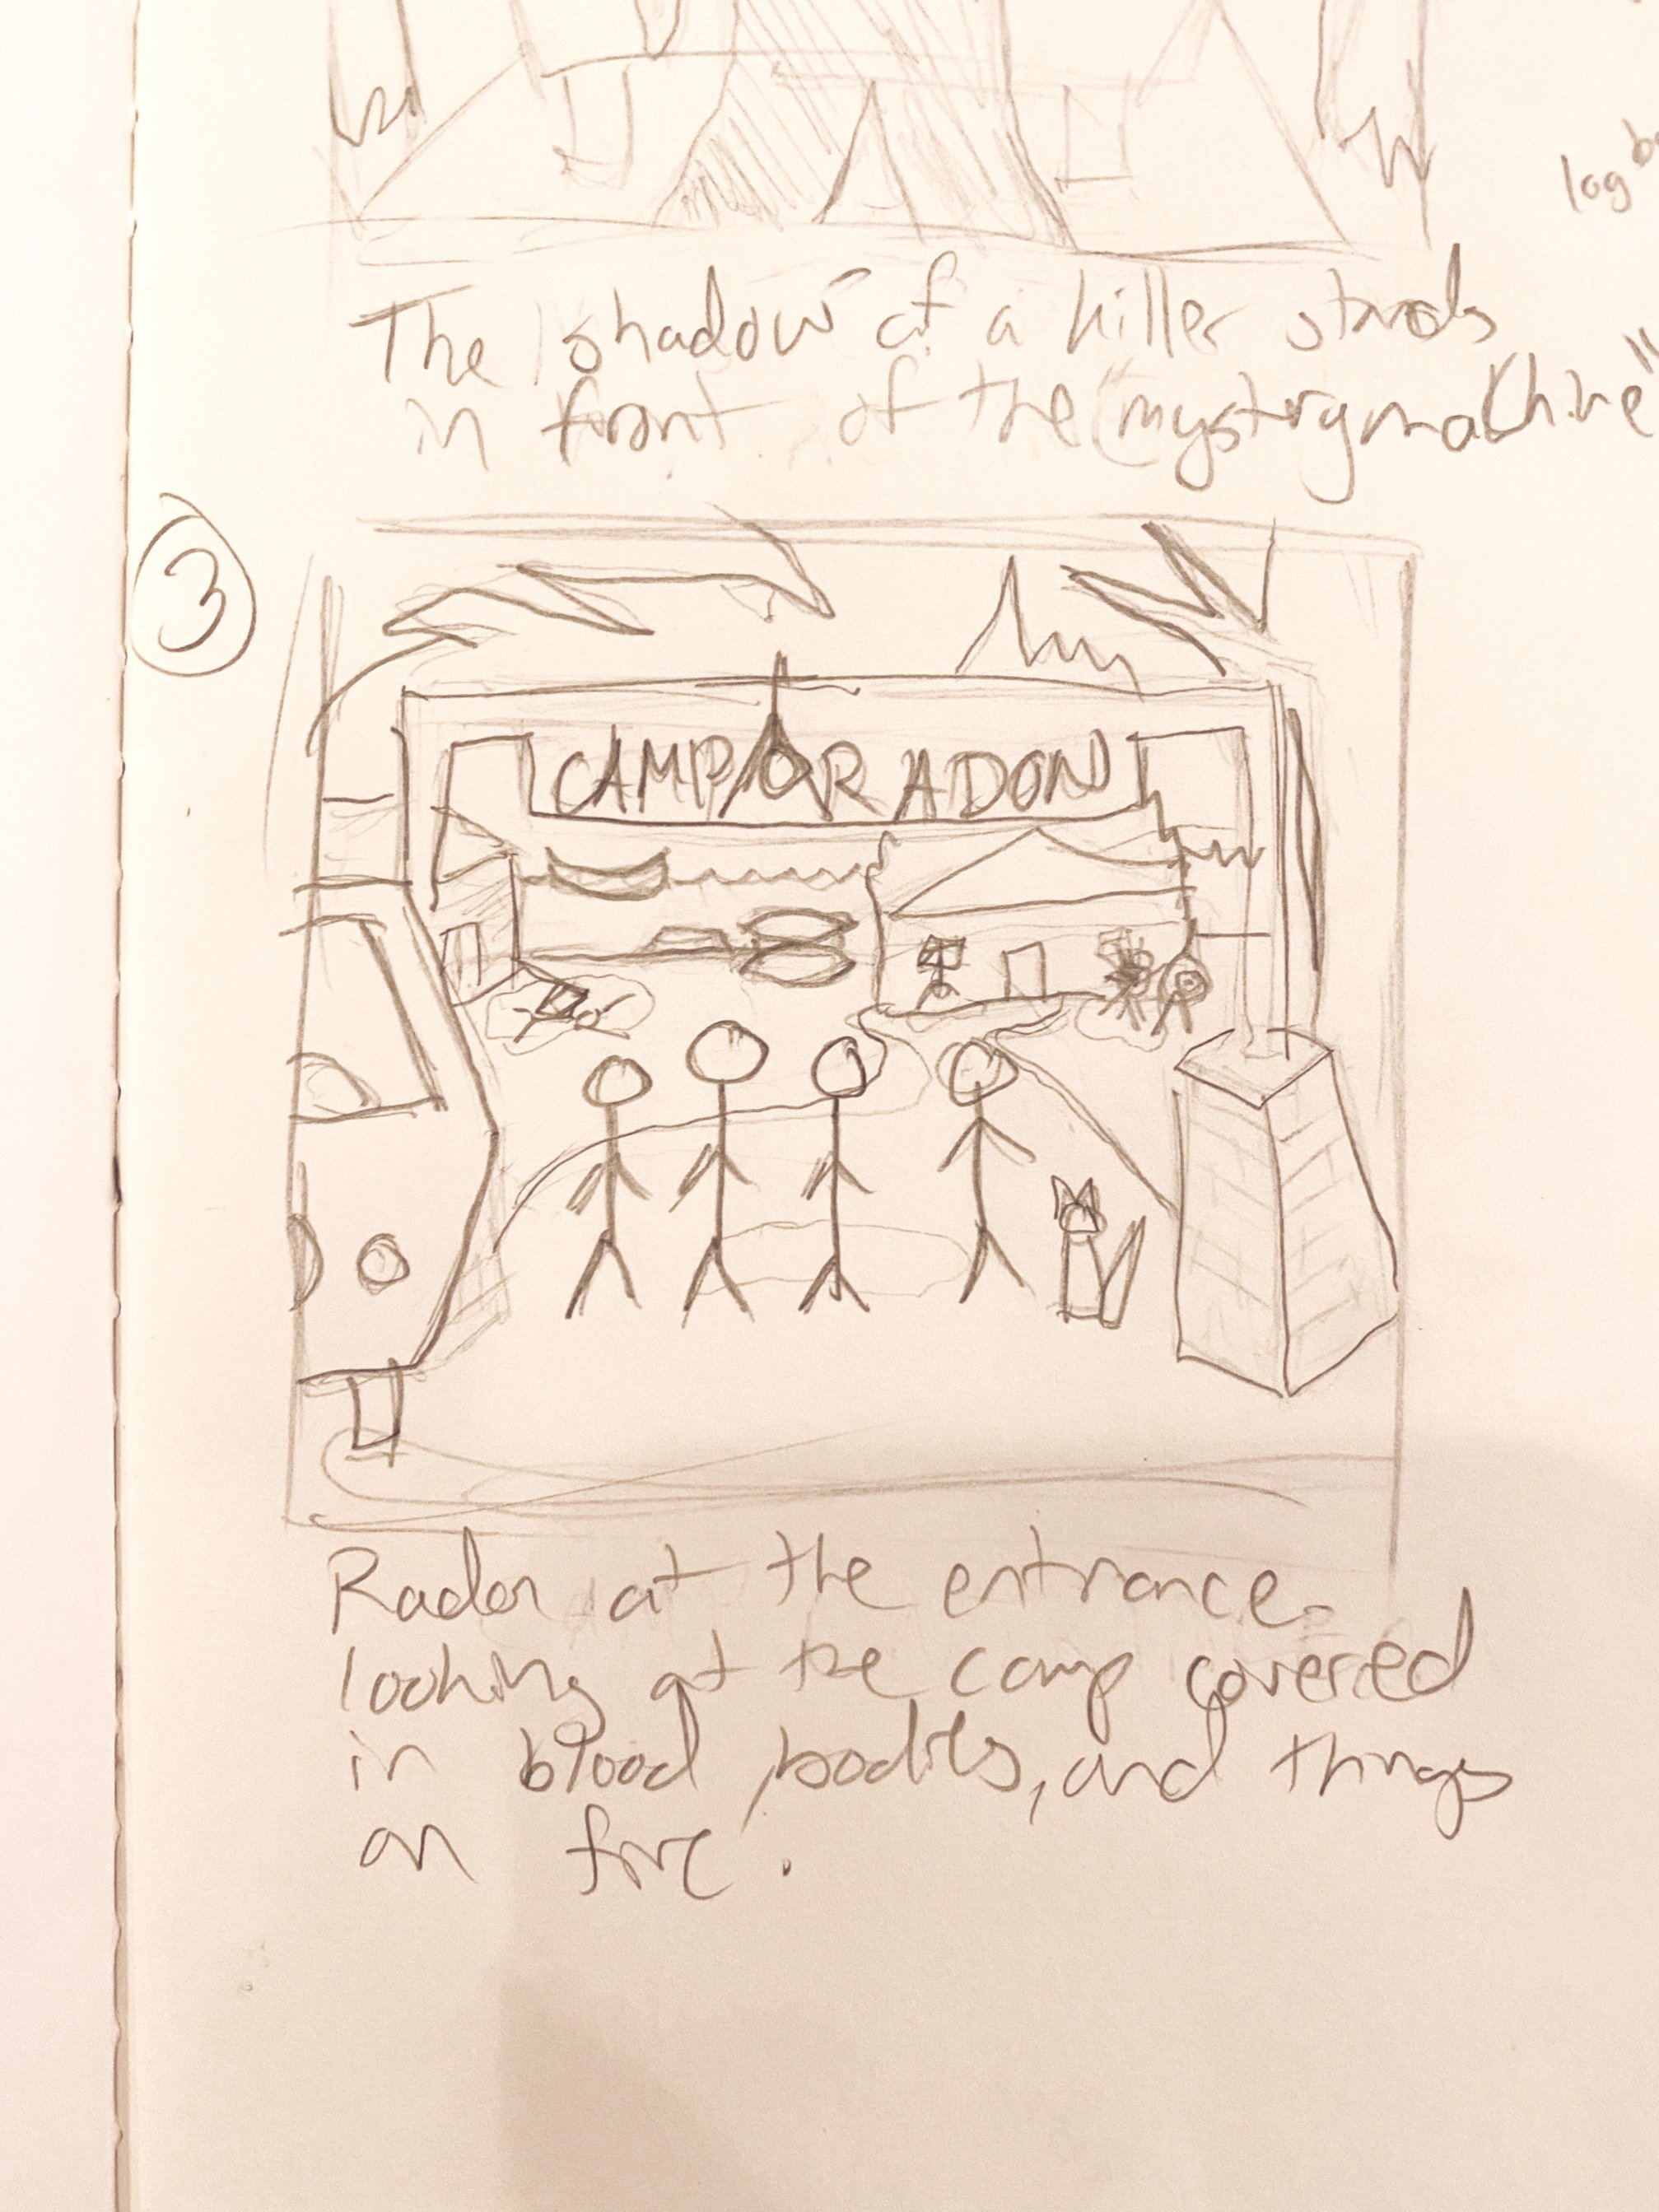 log
The shadow of a killer stands
in front of the "mystery machine"
3
CAMP RADON
Radon at the entrance
looking at the camp covered
in blood, bodies, and things
on fire.